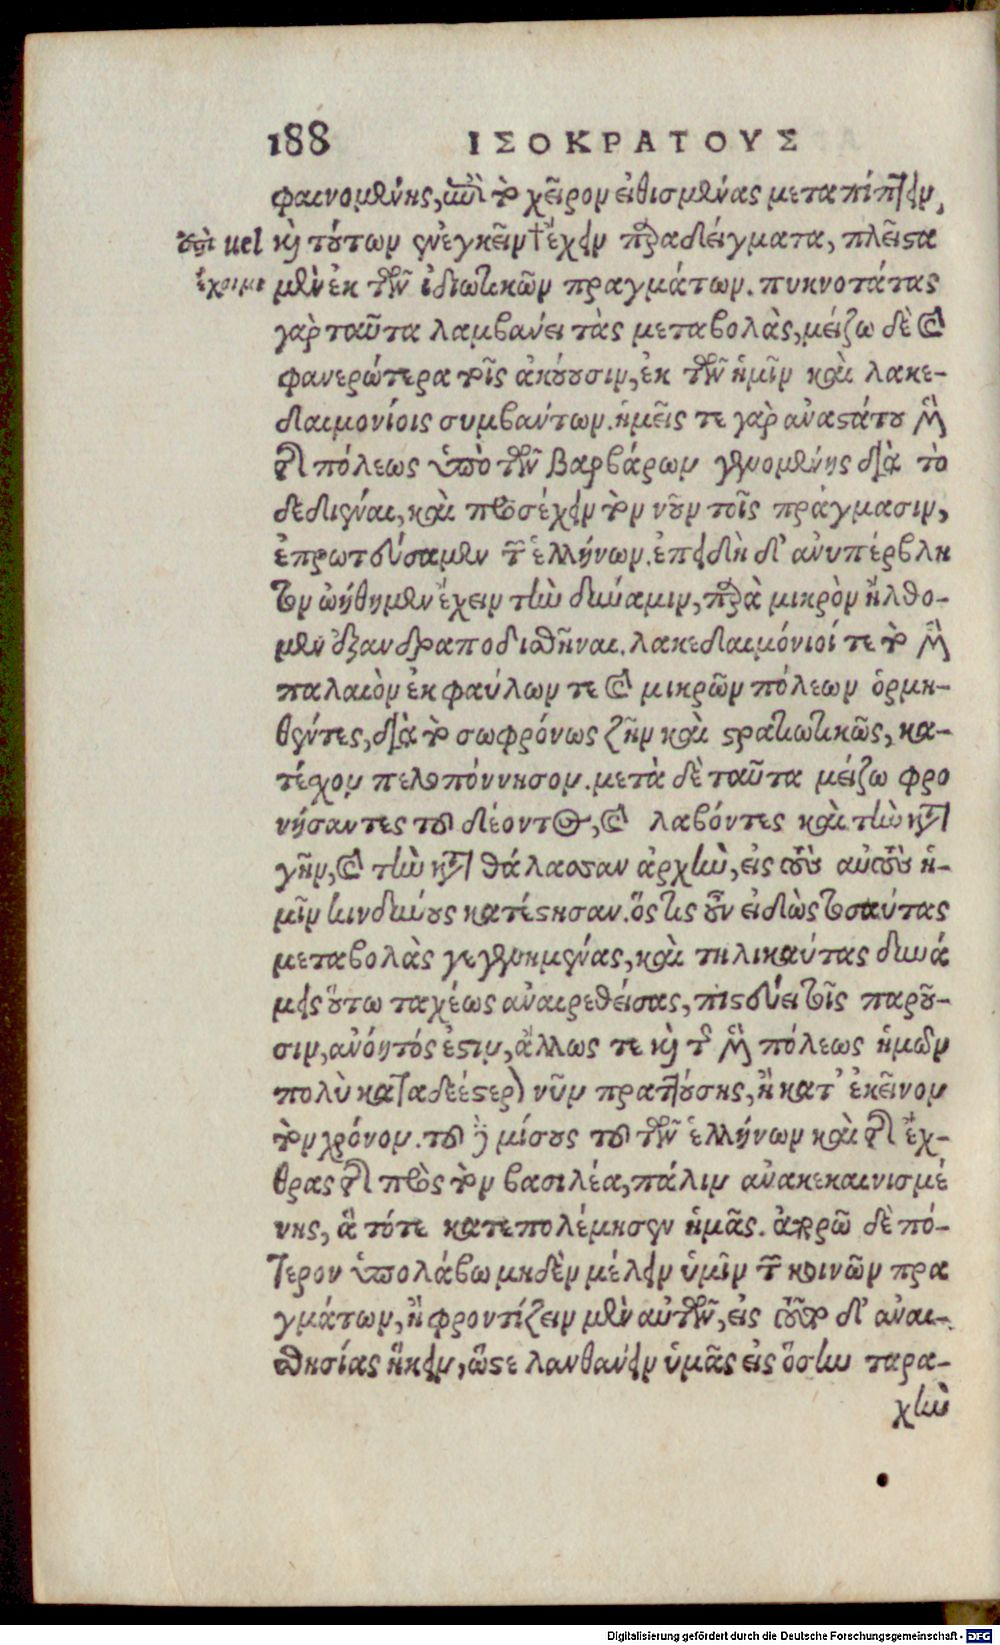 188 ΙΣΟΚΡΑΤΟΥΣ
φαινομένης, ἐπὶ τὸ χεῖρον εἰθισμένας μεταπίπτειν,
uel καὶ τούτων ἐνεγκεῖν † ἔχειν παραδείγματα, πλεῖστα
ἔχοιμι μὲν ἐκ τῶν ἰδιωτικῶν πραγμάτων. πυκνοτάτας
γὰρ ταῦτα λαμβάνει τὰς μεταβολὰς, μείζω δὲ καὶ
φανερώτερα τοῖς ἀκούουσιν, ἐκ τῶν ἡμῖν καὶ λακε-
δαιμονίοις συμβάντων. ἡμεῖς τε γὰρ ἀναστάτου μὲν
τῆς πόλεως ὑπὸ τῶν βαρβάρων γενομένης διὰ τὸ
δεδιέναι, καὶ προσέχειν τὸν νοῦν τοῖς πράγμασιν,
ἐπρωτεύσαμεν τῶν ἑλλήνων. ἐπειδὴ δ' ἀνυπέρβλη
τον ᾠήθημεν ἔχειν τὴν δύναμιν, παρὰ μικρὸν ἤλθο-
μεν ἐξανδραποδισθῆναι. λακεδαιμόνιοί τε τὸ μὲν
παλαιὸν ἐκ φαύλων τε καὶ μικρῶν πόλεων ὁρμη-
θέντες, διὰ τὸ σωφρόνως ζῆν καὶ στρατιωτικῶς, κα-
τέχον πελοπόννησον. μετὰ δὲ ταῦτα μείζω φρο
νήσαντες τοῦ δέοντος, καὶ λαβόντες καὶ τὴν κατὰ
γῆν, καὶ τὴν κατὰ θάλασσαν ἀρχὴν, εἰς τοὺς αὐτοὺς ἡ-
μῖν κινδύνους κατέστησαν. ὅστις οὖν εἰδὼς τοσαύτας
μεταβολὰς γεγενημένας, καὶ τηλικαύτας δυνά
μεις οὕτω ταχέως ἀναιρεθείσας, πιστεύει τοῖς παροῦ-
σιν, ἀνόητός ἐστιν, ἄλλως τε καὶ τῆς μὲν πόλεως ἡμῶν
πολὺ καταδεέστερον νῦν πραττούσης, ἢ κατ' ἐκεῖνον
τὸν χρόνον. τοῦ δὲ μίσους τοῦ τῶν ἑλλήνων καὶ τῆς ἔχ-
θρας τῆς πρὸς τὸν βασιλέα, πάλιν ἀνακεκαινισμέ
νης, ἃ τότε κατεπολέμησεν ἡμᾶς. ἀπορῶ δὲ πό-
τερον ὑπολάβω μηδὲν μέλειν ὑμῖν τῶν κοινῶν πρα
γμάτων, ἢ φροντίζειν μὲν αὐτῶν, εἰς τοῦτο δ' ἀναι-
σθησίας ἥκειν, ὥστε λανθάνειν ὑμᾶς εἰς ὅσην ταρα-
χὴν
Digitalisierung gefördert durch die Deutsche Forschungsgemeinschaft - DFG